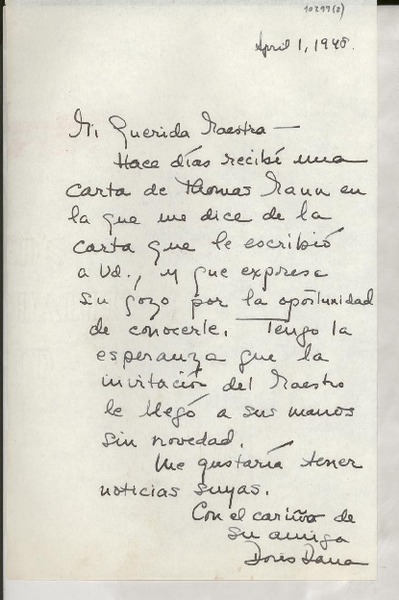 10299(2)
April 1, 1948.
Mi Querida Maestra —
Hace días recibí una
carta de Thomas Mann en
la que me dice de la
carta que le escribió
a Ud., y que expresa
su gozo por la oportunidad
de conocerle. Tengo la
esperanza que la
invitación del Maestro
le llegó a sus manos
sin novedad.
Me gustaría tener
noticias suyas.
Con el cariño de
su amiga
Doris Dana